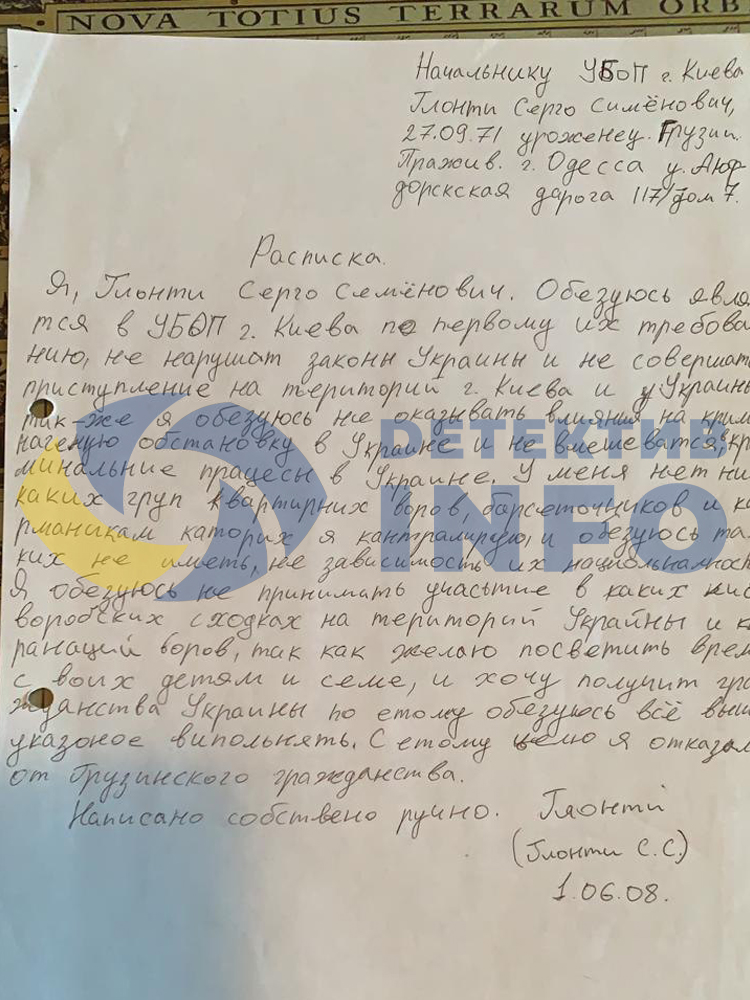 NOVA TOTIUS TERRARUM ORB
Начальнику УБОП г. Киева
Глонти Серго Симёнович,
27.09.71 уроженец. Грузии.
Пражив. г. Одесса у. Люф
дорскская дарога 117/дом 7.
Расписка.
Я, Глонти Серго Семёнович. Обезуюсь явля
тся в УБОП г. Киева по первому их требова
нию, не нарушат законы Украины и не совершат
приступление на територий г. Киева и у Украины
так-же я обезуюсь не оказывать влияния на крим
нагеную обстановку в Украине и не вмешеватся, кр
минальние працесы в Украине. У меня нет ни
каких груп квартирних воров, барсеточников и ка
рманикам каторих я кантралирую, и обезуюсь та
ких не иметь, не зависимость их национальност
Я обезуюсь не принимать участие в каких нис
воробских сходках на територий Украйны и к
ранаций воров, так как желаю посветить врем
с воих детям и семе, и хочу получит гра
жданства Украины по етому обезуюсь всё выш
указоное випольнять. С етому целю я отказал
от Грузинского гражданства.
Написано собствено ручно. Глонти
(Глонти С.С.)
1.06.08.
DETEKTИВ
INFO